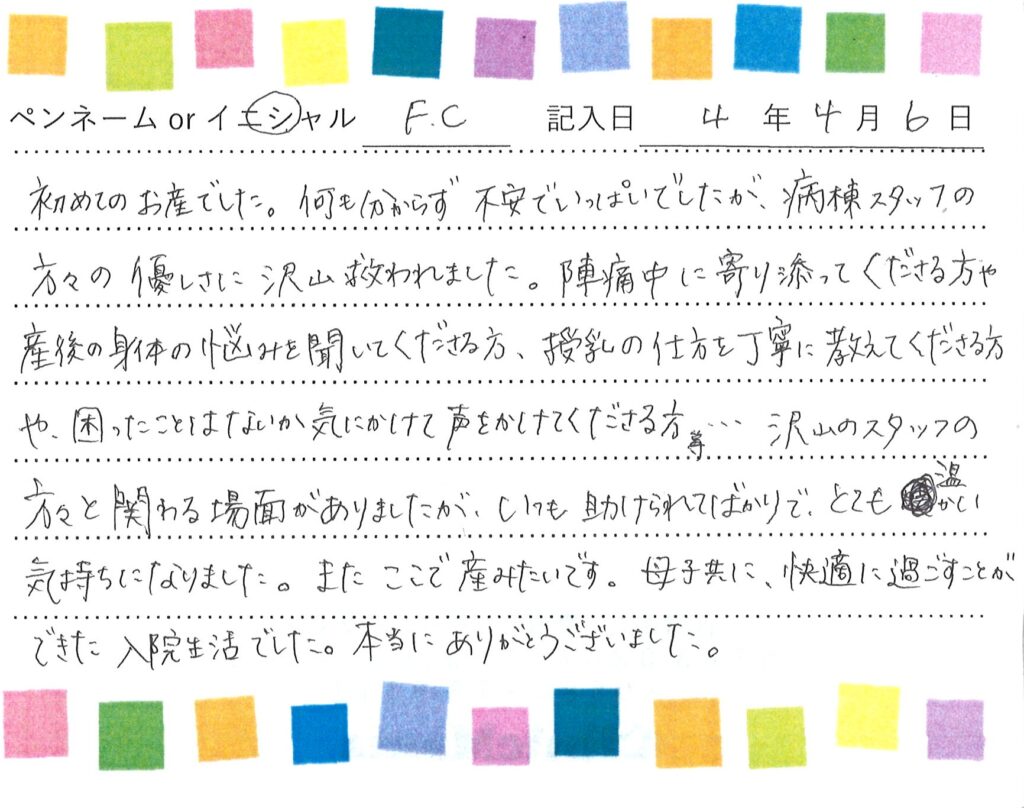 ペンネーム or イニシャル F.C 記入日 4 年 4 月 6 日
初めてのお産でした。何も分からず不安でいっぱいでしたが、病棟スタッフの
方々の優しさに沢山救われました。陣痛中に寄り添ってくださる方や
産後の身体の悩みを聞いてくださる方、授乳の仕方を丁寧に教えてくださる方
や、困ったことはないか気にかけて声をかけてくださる方等… 沢山のスタッフの
方々と関わる場面がありましたが、いつも助けられてばかりで、とても温かい
気持ちになりました。またここで産みたいです。母子共に、快適に過ごすことが
できた入院生活でした。本当にありがとうございました。